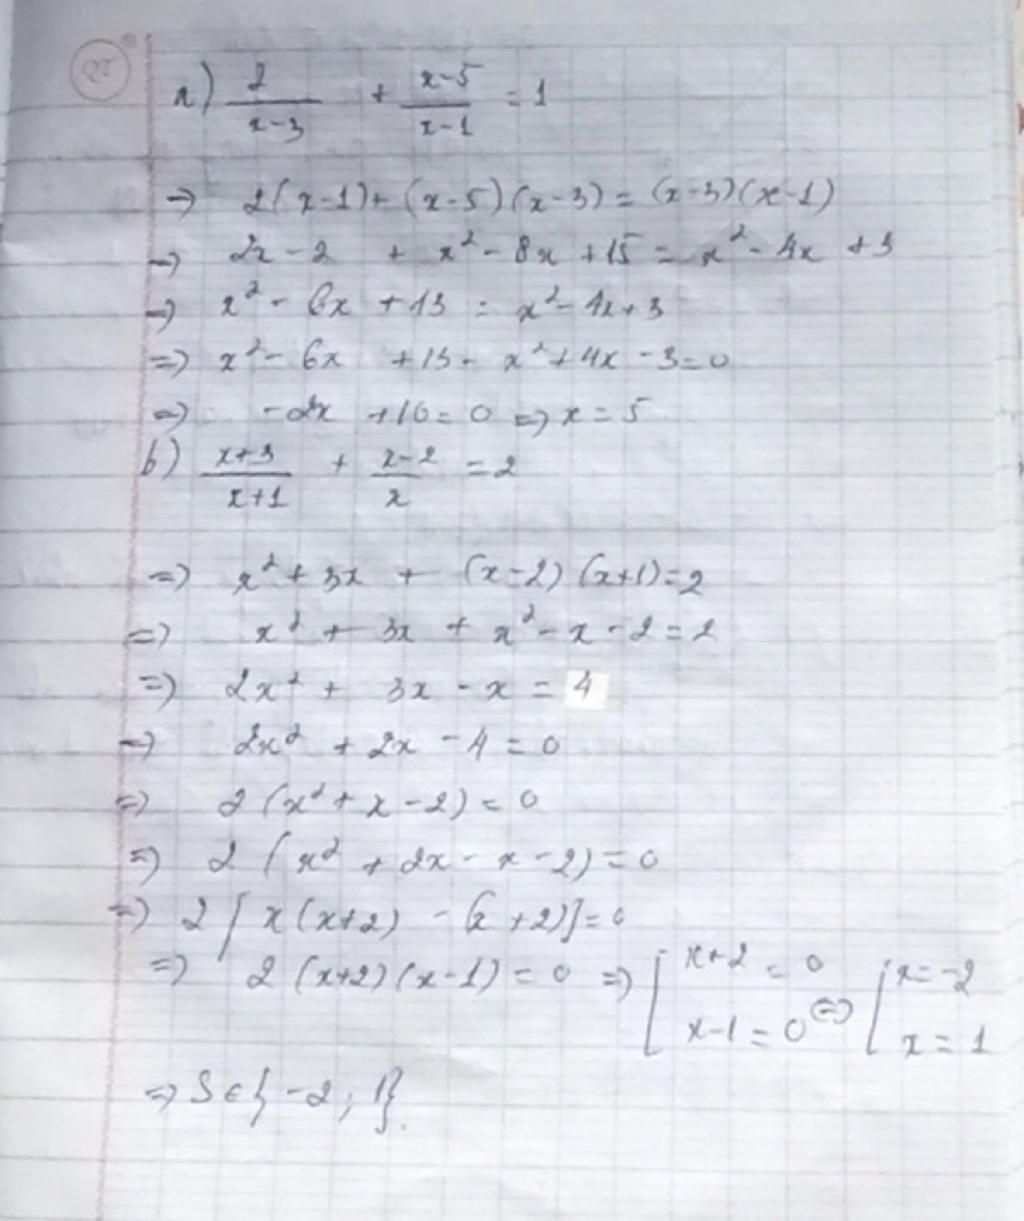 a) 2/(x-3) + (x-5)/(x-1) = 1
=> 2(x-1) + (x-5)(x-3) = (x-3)(x-1)
=> 2x - 2 + x² - 8x + 15 = x² - 4x + 3
=> x² - 6x + 13 = x² - 4x + 3
=> x² - 6x + 13 - x² + 4x - 3 = 0
=> -2x + 10 = 0 => x = 5
b) (x+3)/(x+1) + (x-2)/x = 2
=> x² + 3x + (x-2)(x+1) = 2
=> x² + 3x + x² - x - 2 = 2
=> 2x² + 3x - x = 4
=> 2x² + 2x - 4 = 0
=> 2(x² + x - 2) = 0
=> 2(x² + 2x - x - 2) = 0
=> 2[x(x+2) - (x+2)] = 0
=> 2(x+2)(x-1) = 0 => [ x+2 = 0 <=> [ x = -2
x-1 = 0 x = 1
=> S ∈ {-2; 1}.